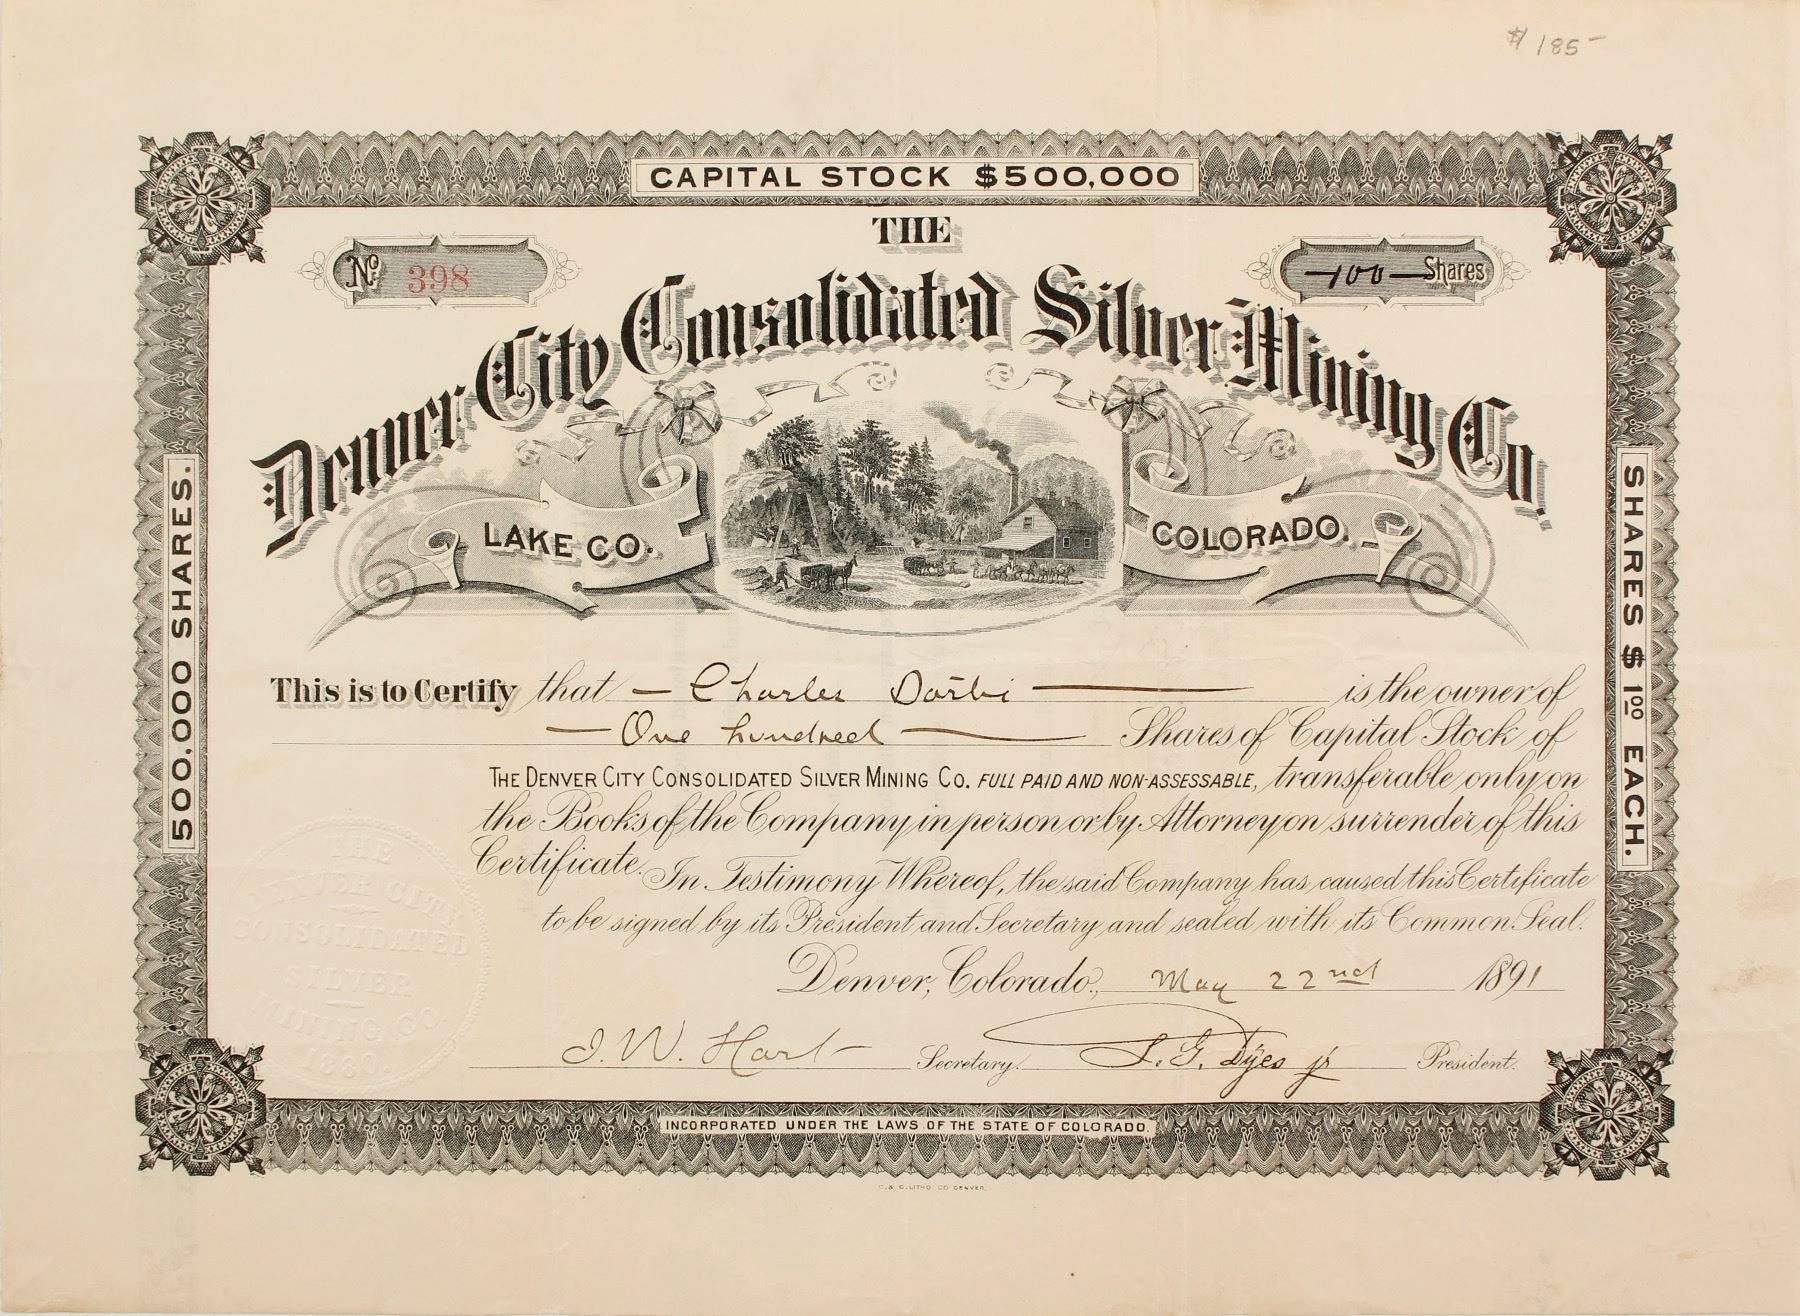 $185-
CAPITAL STOCK $500,000
THE
No 398
100 Shares
Denver City Consolidated Silver Mining Co.
LAKE CO.
COLORADO.
500.000 SHARES.
SHARES $1.00 EACH.
This is to Certify that — Charles Darbi — is the owner of
— One hundred — Shares of Capital Stock of
THE DENVER CITY CONSOLIDATED SILVER MINING CO. FULL PAID AND NON-ASSESSABLE, transferable only on
the Books of the Company in person or by Attorney on surrender of this
Certificate. In Testimony Whereof, the said Company has caused this Certificate
to be signed by its President and Secretary and sealed with its Common Seal.
Denver, Colorado, May 22nd 1891
THE
DENVER CITY
CONSOLIDATED
SILVER
MINING CO.
1880.
J. W. Hart Secretary.
L. G. Dyes jr President.
INCORPORATED UNDER THE LAWS OF THE STATE OF COLORADO.
LITHO. CO DENVER.